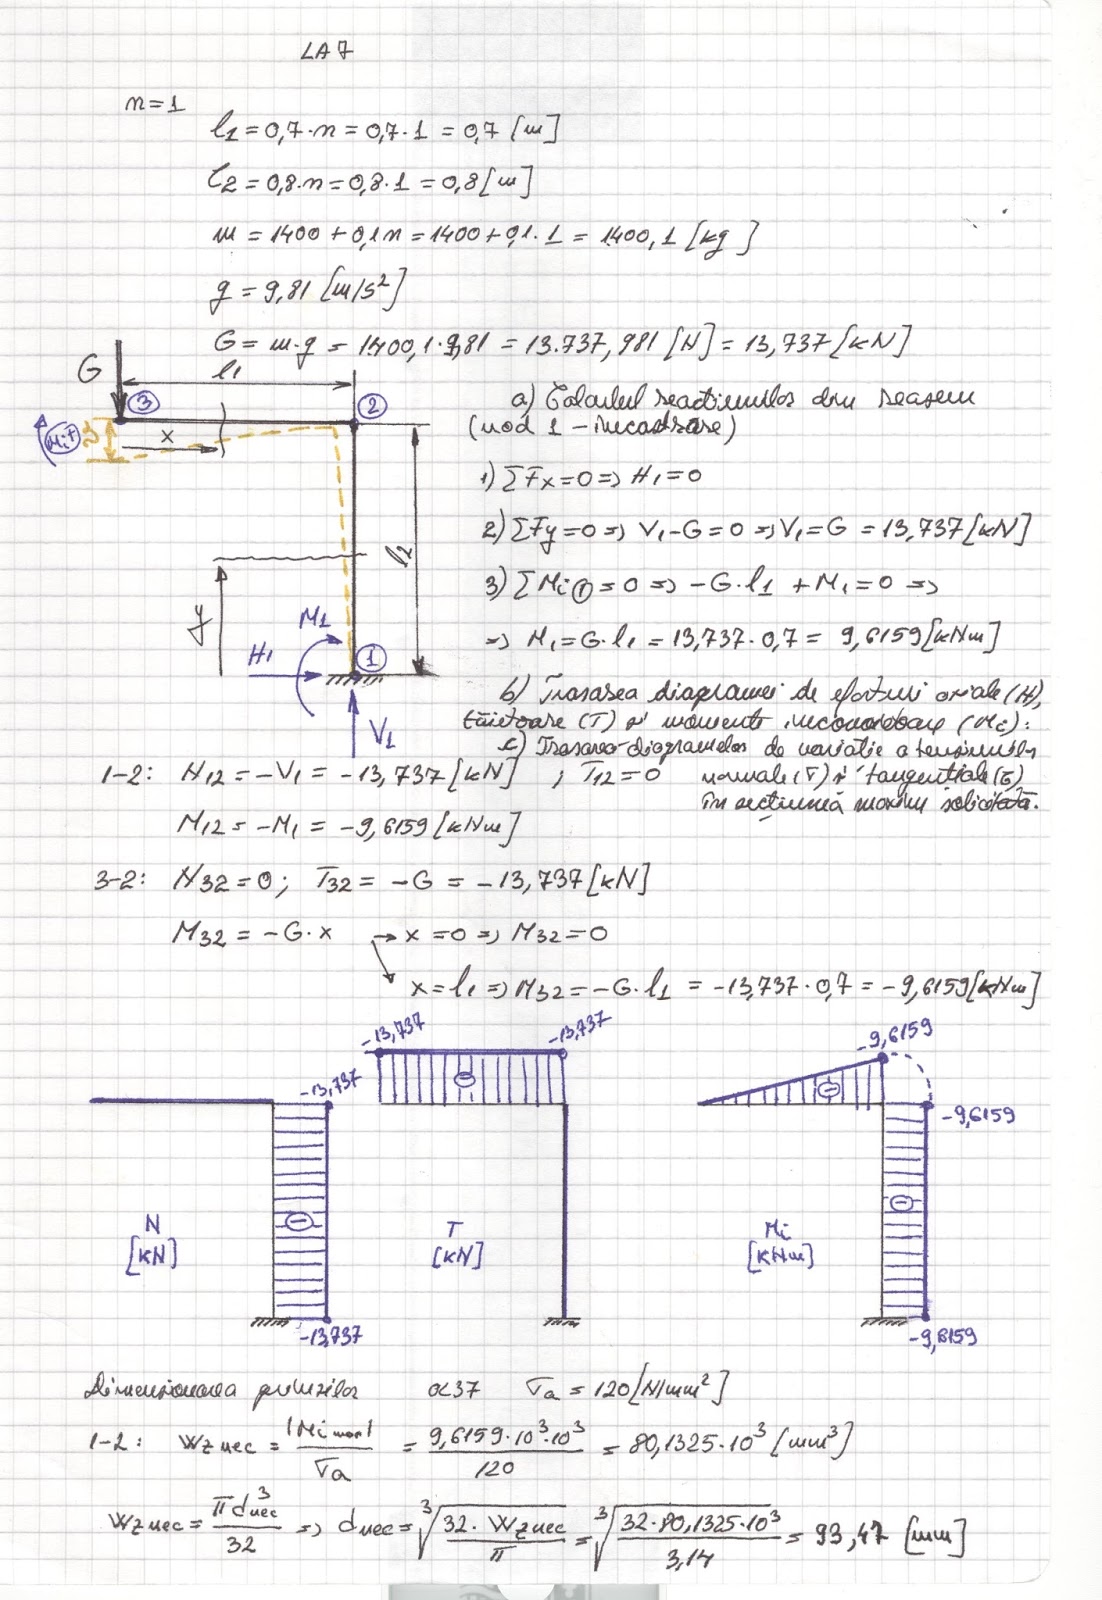 LA7
n=1
l1=0,7·n=0,7·1=0,7 [m]
l2=0,8·n=0,8·1=0,8[m]
m=1400+0,1n=1400+0,1·1=1400,1 [kg]
g=9,81 [m/s²]
G=m·g=1400,1·9,81=13.737,981 [N]=13,737[kN]
G
l1
3
2
Mi+
x
l2
y
M1
H1
1
V1
a) Calculul reacțiunilor din reazem
(nod 1 - încastrare)
1) ΣFx=0=> H1=0
2) ΣFy=0=> V1-G=0 => V1=G=13,737[kN]
3) ΣMi1=0 => -G·l1+M1=0 =>
=> M1=G·l1=13,737·0,7=9,6159[kNm]
b) Trasarea diagramei de eforturi axiale (N),
tăietoare (T) și momente încovoietoare (Mi):
c) Trasarea diagramelor de variație a tensiunilor
normale (σ) și tangențiale (τ)
în secțiunea maxim solicitată.
1-2: N12=-V1=-13,737[kN] ; T12=0
M12=-M1=-9,6159[kNm]
3-2: N32=0; T32=-G=-13,737[kN]
M32=-G·x → x=0=> M32=0
x=l1=>M32=-G·l1=-13,737·0,7=-9,6159[kNm]
-13,737
-13,737
-13,737
-9,6159
-9,6159
N
[kN]
T
[kN]
Mi
[kNm]
-13,737
-9,6159
Dimensionarea OL37 σa=120[N/mm²]
1-2: Wz nec=|Mi max|/σa=9,6159·10³·10³/120=80,1325·10³ [mm³]
Wz nec=πd³nec/32 => dnec=³√(32·Wz nec/π)=³√(32·80,1325·10³/3,14)=93,47 [mm]